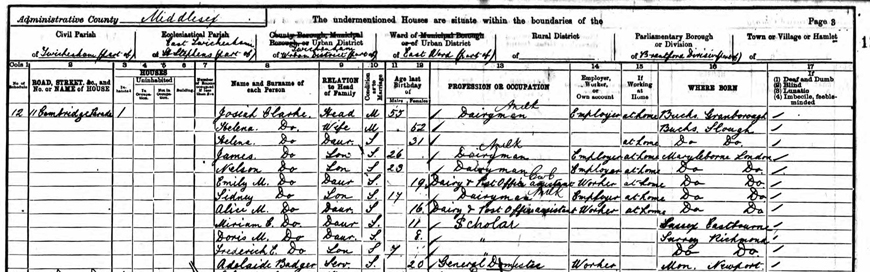 Administrative County Middlesex The undermentioned Houses are situate within the boundaries of the Page 3
Civil Parish Ecclesiastical Parish County Borough, Municipal Borough, or Urban District Ward of Municipal Borough or of Urban District Rural District Parliamentary Borough or Division Town or Village or Hamlet
of Twickenham (part of) of East Twickenham St Stephens (part of) of Twickenham Urban District (part of) of East Ward (part of) of of Brentford Division (part of) of
Cols 1 2 3 4 5 6 7 8 9 10 11 12 13 14 15 16 17
No. of Schedule ROAD, STREET, &c., and No. or NAME of HOUSE HOUSES Inhabited Uninhabited In Occupation Not in Occupation Building Name and Surname of each Person RELATION to Head of Family Condition as to Marriage Age last Birthday of Males Females PROFESSION OR OCCUPATION Employer, Worker, or Own account If Working at Home WHERE BORN (1) Deaf and Dumb (2) Blind (3) Lunatic (4) Imbecile, feeble-minded
12 11 Cambridge Parade 1 Josiah Clarke Head M 55 Dairyman Milk Employer at home Bucks. Granborough
Helena. Do. Wife M 52 Bucks. Slough
Helena. Do Daur. S 31 at home Do Do
James. Do Son S 26 Dairyman Milk Employer at home Marylebone London
Nelson Do Son S 23 Dairyman Employer at home Do Do
Emily M. Do Daur S 19 Dairy & Post Office assistant Worker at home Do Do
Sidney Do Son S 17 Dairyman Milk at home Do Do
Alice M. Do Daur. S 16 Dairy & Post Office assistant Worker at home Do Do
Miriam E. Do Daur. S 11 Scholar Sussex Eastbourne
Doris M. Do Daur. S 8 " Surrey Richmond
Frederick C. Do Son S 7 " Do Do
Adelaide Badger Serv. S 20 General Domestic Worker Mon. Newport